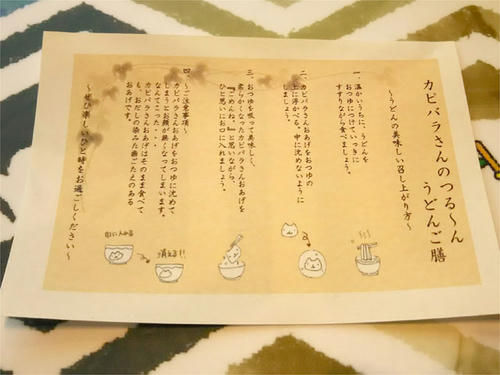 カピバラさんのつる〜ん
うどんご膳
〜うどんの美味しい召し上がり方〜
一、温かいうちに、うどんを
おつゆにつけていっきに
すすりながら食べましょう。
二、カピバラさんおあげをおつゆの
上に浮かべる。中に沈めないように
しましょう。
三、おつゆを吸って美味しく、
柔らかくなったカピバラさんおあげを
『ごめんね。』と思いながら、
ひと思いにお口に入れましょう。
四、〜ご注意事項〜
カピバラさんおあげをおつゆに沈めて
しまうとお顔が無くなってしまいます。
なんてこった・・
カピバラさんおあげはそのまま食べて
も、おだしの染みた歯ごたえのある
おあげです。
〜ぜひ楽しいひと時をお過ごしください〜
消える!!